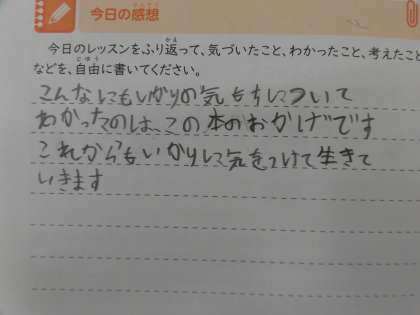 今日の感想
今日のレッスンをふり返って、気づいたこと、わかったこと、考えたこと
などを、自由に書いてください。
こんなにもいかりの気もちについて
わかったのは、この本のおかげです
これからもいかりに気をつけて生きて
いきます